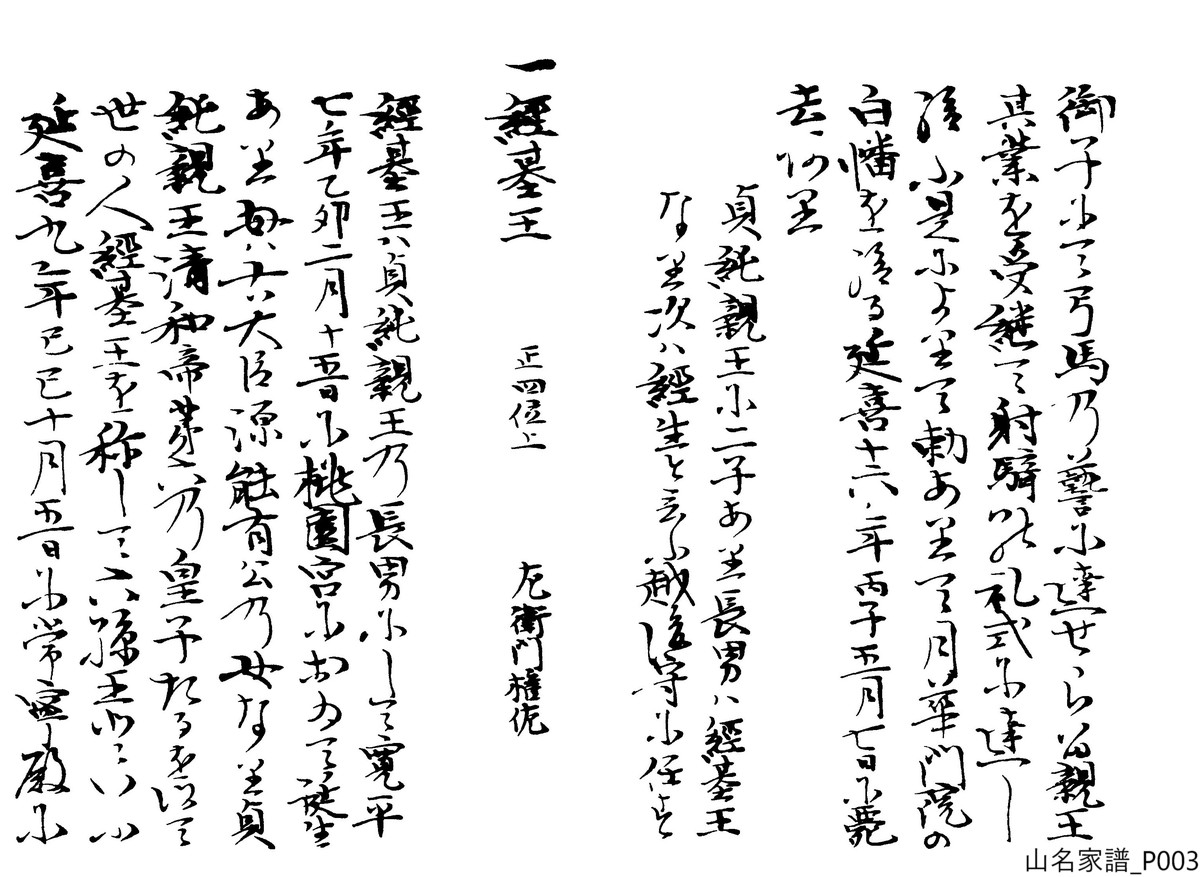 御子にて弓馬乃藝に達せらる親王
其業を受継て射騎の礼式に達し
給ふ是によりて勅ありて月華門院の
白幡を給る延喜十六年丙子五月七日に薨
去あり
貞純親王に二子あり長男ハ經基王
なり次ハ經生と云ふ越後守に任す
一經基王 正四位上 左衛門権佐
經基王ハ貞純親王乃長男にして寛平
七年乙卯二月十五日に桃園宮におゐて誕生
あり母ハ右大臣源能有公乃女なり貞
純親王清和帝第六乃皇子たるを以て
世の人經基王を称して六孫王といふ
延喜九年己巳十月五日に常寧殿に
山名家譜_P003